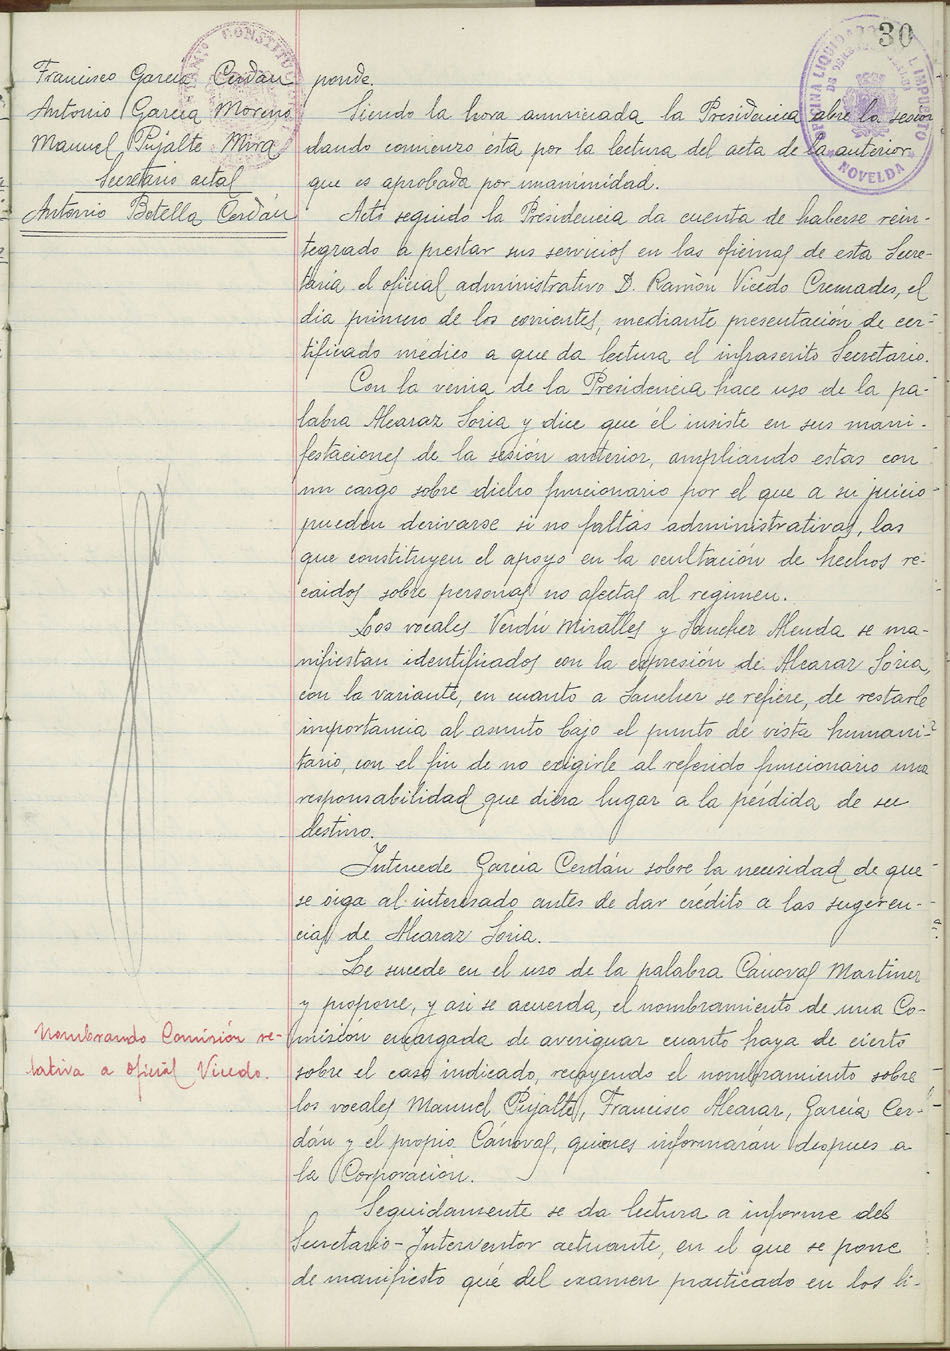 30
Francisco García Cerdán
Antonio García Moreno
Manuel Pujalte Mira
Secretario actal
Antonio Botella Cerdán
ponde.
Siendo la hora anunciada la Presidencia abre la sesión
dando comienzo ésta por la lectura del acta de la anterior
que es aprobada por unanimidad.
Acto seguido la Presidencia da cuenta de haberse rein-
tegrado a prestar sus servicios en las oficinas de esta Secre-
taría el oficial administrativo D. Ramón Vicedo Cremades, el
dia primero de los corrientes, mediante presentación de cer-
tificado médico a que da lectura el infrascrito Secretario.
Con la venia de la Presidencia hace uso de la pa-
labra Alcaraz Soria y dice que él insiste en sus mani-
festaciones de la sesión anterior, ampliando estas con
un cargo sobre dicho funcionario por el que a su juicio
pueden derivarse si no faltas administrativas, las
que constituyen el apoyo en la ocultación de hechos re-
caidos sobre personas no afectas al regimen.
Los vocales Verdú Miralles y Sanchez Alenda se ma-
nifiestan identificados con la expresión de Alcaraz Soria,
con la variante, en cuanto a Sanchez se refiere, de restarle
importancia al asunto bajo el punto de vista humani-
tario, con el fin de no exigirle al referido funcionario una
responsabilidad que diera lugar a la pérdida de su
destino.
Intercede García Cerdán sobre la necesidad de que
se oiga al interesado antes de dar crédito a las sugeren-
cias de Alcaraz Soria.
Le sucede en el uso de la palabra Cánovas Martinez
y propone, y asi se acuerda, el nombramiento de una Co-
misión encargada de averiguar cuanto haya de cierto
sobre el caso indicado, recayendo el nombramiento sobre
los vocales Manuel Pujalte, Francisco Alcaraz, García Cer-
dán y el propio Cánovas, quienes informarán despues a
la Corporación.
Nombrando Comisión re-
lativa a oficial Vicedo.
Seguidamente se da lectura a informe del
Secretario-Interventor actuante, en el que se pone
de manifiesto qué del examen practicado en los li-
OFICINA LIQUIDADORA
IMPUESTO
NOVELDA
CONSTITU